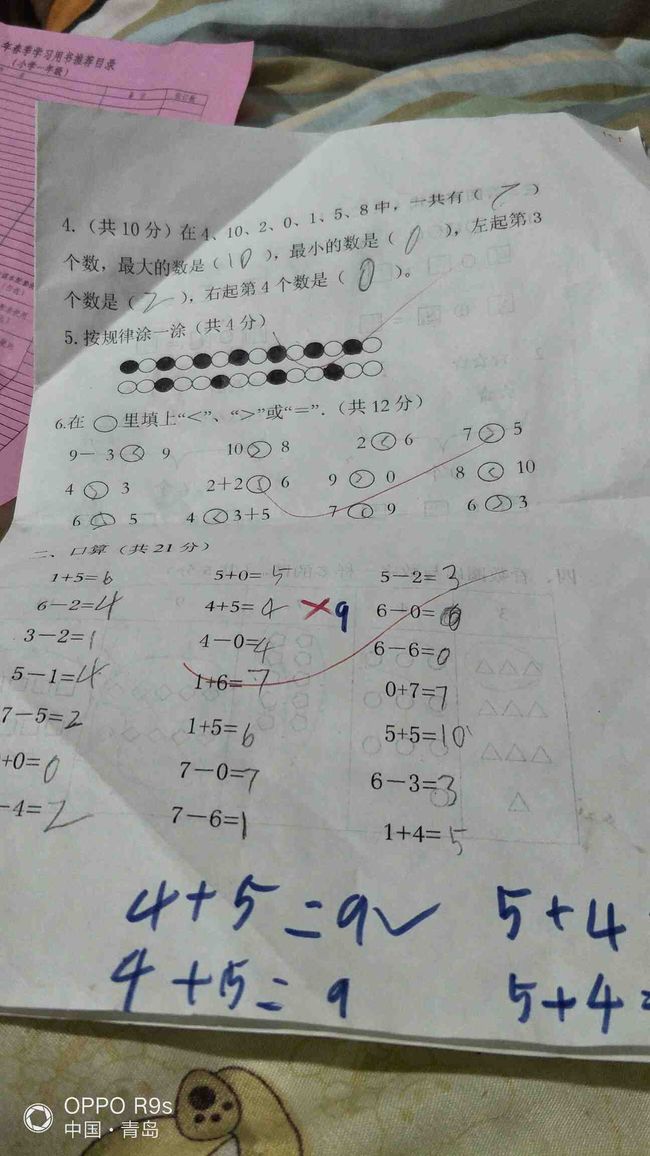 年春季学习用书推荐目录
（小学一年级）
4.（共10分）在4、10、2、0、1、5、8中，一共有（7）
个数，最大的数是（10），最小的数是（0），左起第3
个数是（2），右起第4个数是（0）。
5.按规律涂一涂（共4分）
6.在○里填上“<”、“>”或“=”.（共12分）
9－3<9 10>8 2<6 7>5
4>3 2+2<6 9>0 8<10
6>5 4<3+5 7<9 6>3
二、口算（共21分）
1+5=6 5+0=5 5－2=3
6－2=4 4+5=4 ×9 6－0=6
3－2=1 4－0=4 6－6=0
5－1=4 1+6=7 0+7=7
7－5=2 1+5=6 5+5=10
+0=0 7－0=7 6－3=3
－4=2 7－6=1 1+4=5
4+5=9✓ 5+4
4+5=9 5+4=
OPPO R9s
中国·青岛